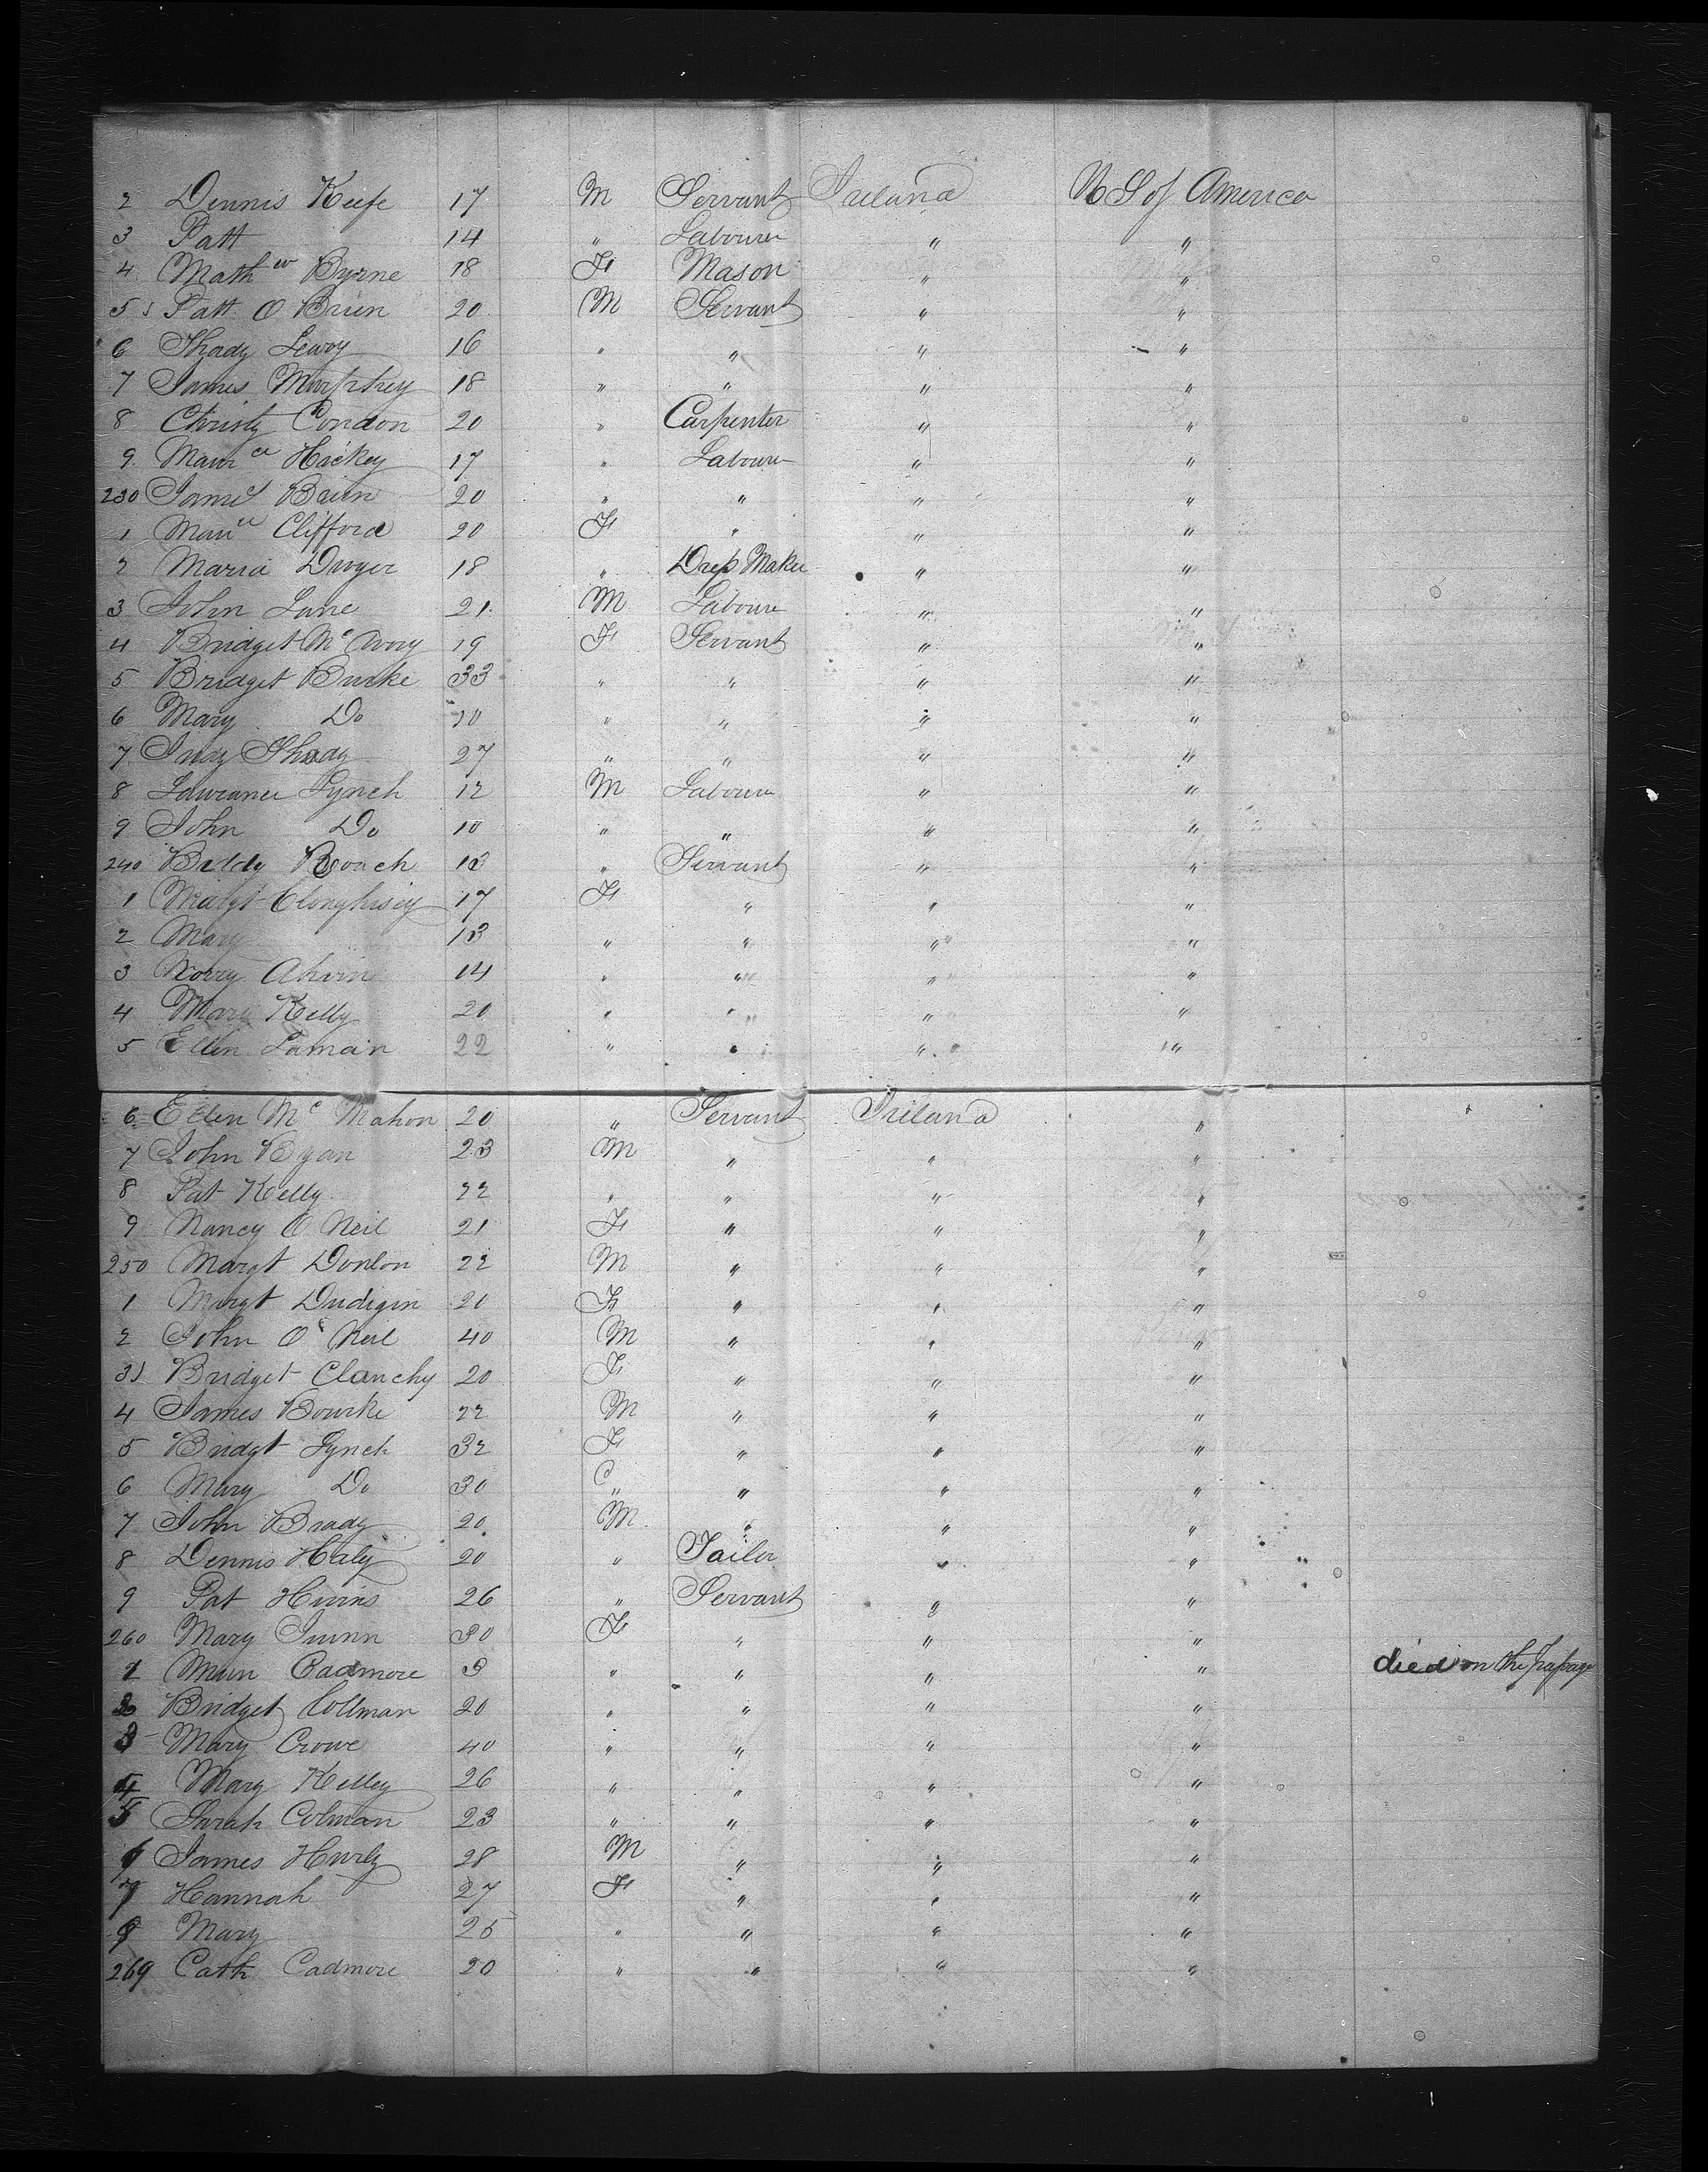 2 Dennis Keefe 17 M Servant Ireland U S of America
3 Patt 14 " Labourer " "
4 Mathew Byrne 18 F Mason " "
5 Patt O Brien 20 M Servant " "
6 Thady 16 " " " "
7 James Murphey 18 " " " "
8 Christy Condon 20 " Carpenter " "
9 Maurce Hickey 17 " Labourer " "
230 James Brien 20 " " " "
1 Maurce Clifford 20 F " " "
2 Maria Dwyer 18 " Dress Maker " "
3 John Lane 21 M Labourer " "
4 Bridget Mc Avory 19 F Servant " "
5 Bridget Burke 33 " " " "
6 Mary Do 10 " " " "
7 Judy Thady 27 " " " "
8 Lawrance Lynch 12 M Labourer " "
9 John Do 10 " " " "
240 Biddy Roach 13 " Servant " "
1 Margt 17 F " " "
2 Mary 13 " " " "
3 Norry Ahirn 14 " " " "
4 Mary Kelly 20 " " " "
5 Ellen Laman 22 " " " "
6 Ellen Mc Mahon 20 " Servant Ireland "
7 John Ryan 23 M " " "
8 Pat Kelly 22 " " " "
9 Nancy O Neil 21 F " " "
250 Margt Donlon 22 M " " "
1 Margt Dudigin 20 F " " "
2 John O'Neil 40 M " " "
3 Bridget Clanchy 20 F " " "
4 James Bourke 22 M " " "
5 Bridgt Lynch 32 F " " "
6 Mary Do 30 " " " "
7 John Brady 20 M " " "
8 Dennis Haly 20 " Tailor " "
9 Pat Hivins 26 " Servant " "
260 Mary Quinn 30 F " " "
1 Cadmore 3 " " " " died on the Passage
2 Bridget Collman 20 " " " "
3 Mary Crowe 40 " " " "
4 Mary Kelley 26 " " " "
5 Sarah Colman 23 " " " "
6 James Hurly 28 M " " "
7 Hannah 27 F " " "
8 Mary 25 " " " "
269 Cath Cadmore 20 " " " "